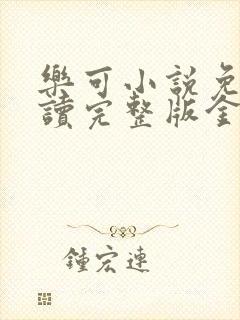 樂可小說免
讀完整版全
鍾宏連